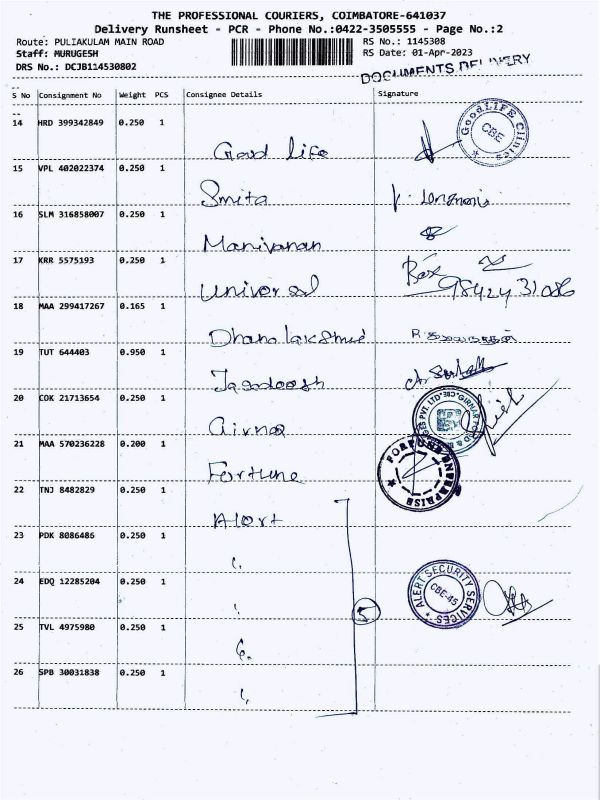 THE PROFESSIONAL COURIERS, COIMBATORE-641037
Delivery Runsheet - PCR - Phone No.:0422-3505555 - Page No.:2
Route: PULIAKULAM MAIN ROAD RS No.: 1145308
Staff: MURUGESH RS Date: 01-Apr-2023
DRS No.: DCJB114530802 DOCUMENTS DELIVERY
S No Consignment No Weight PCS Consignee Details Signature
14 HRD 399342849 0.250 1
Good life GOODLIFE Clinics CBE
15 VPL 402022374 0.250 1
Smita
16 SLM 316858007 0.250 1
Manivanan
17 KRR 5575193 0.250 1
Universal 98424 31086
18 MAA 299417267 0.165 1
Dhanalakshmi
19 TUT 644403 0.950 1
Jagadeesh
20 COK 21713654 0.250 1
Girnar
21 MAA 570236228 0.200 1
Fortune FORTUNE ENTERPRISE
22 TNJ 8482829 0.250 1
Alert
23 PDK 8086486 0.250 1
24 EDQ 12285204 0.250 1
ALERT SECURITY SERVICES CBE-45
5
25 TVL 4975980 0.250 1
26 SPB 30031838 0.250 1